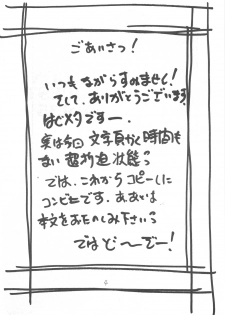 ごあいさっ!
いつもながらすみません!
そして、ありがとうございます
はじメタですー。
実は今回文字頁かく時間も
ない超切迫状態っ
では、これからコピーしに
コンビニです。ああとは
本文をおたのしみ下さいっ
ではど〜ぞー!
4